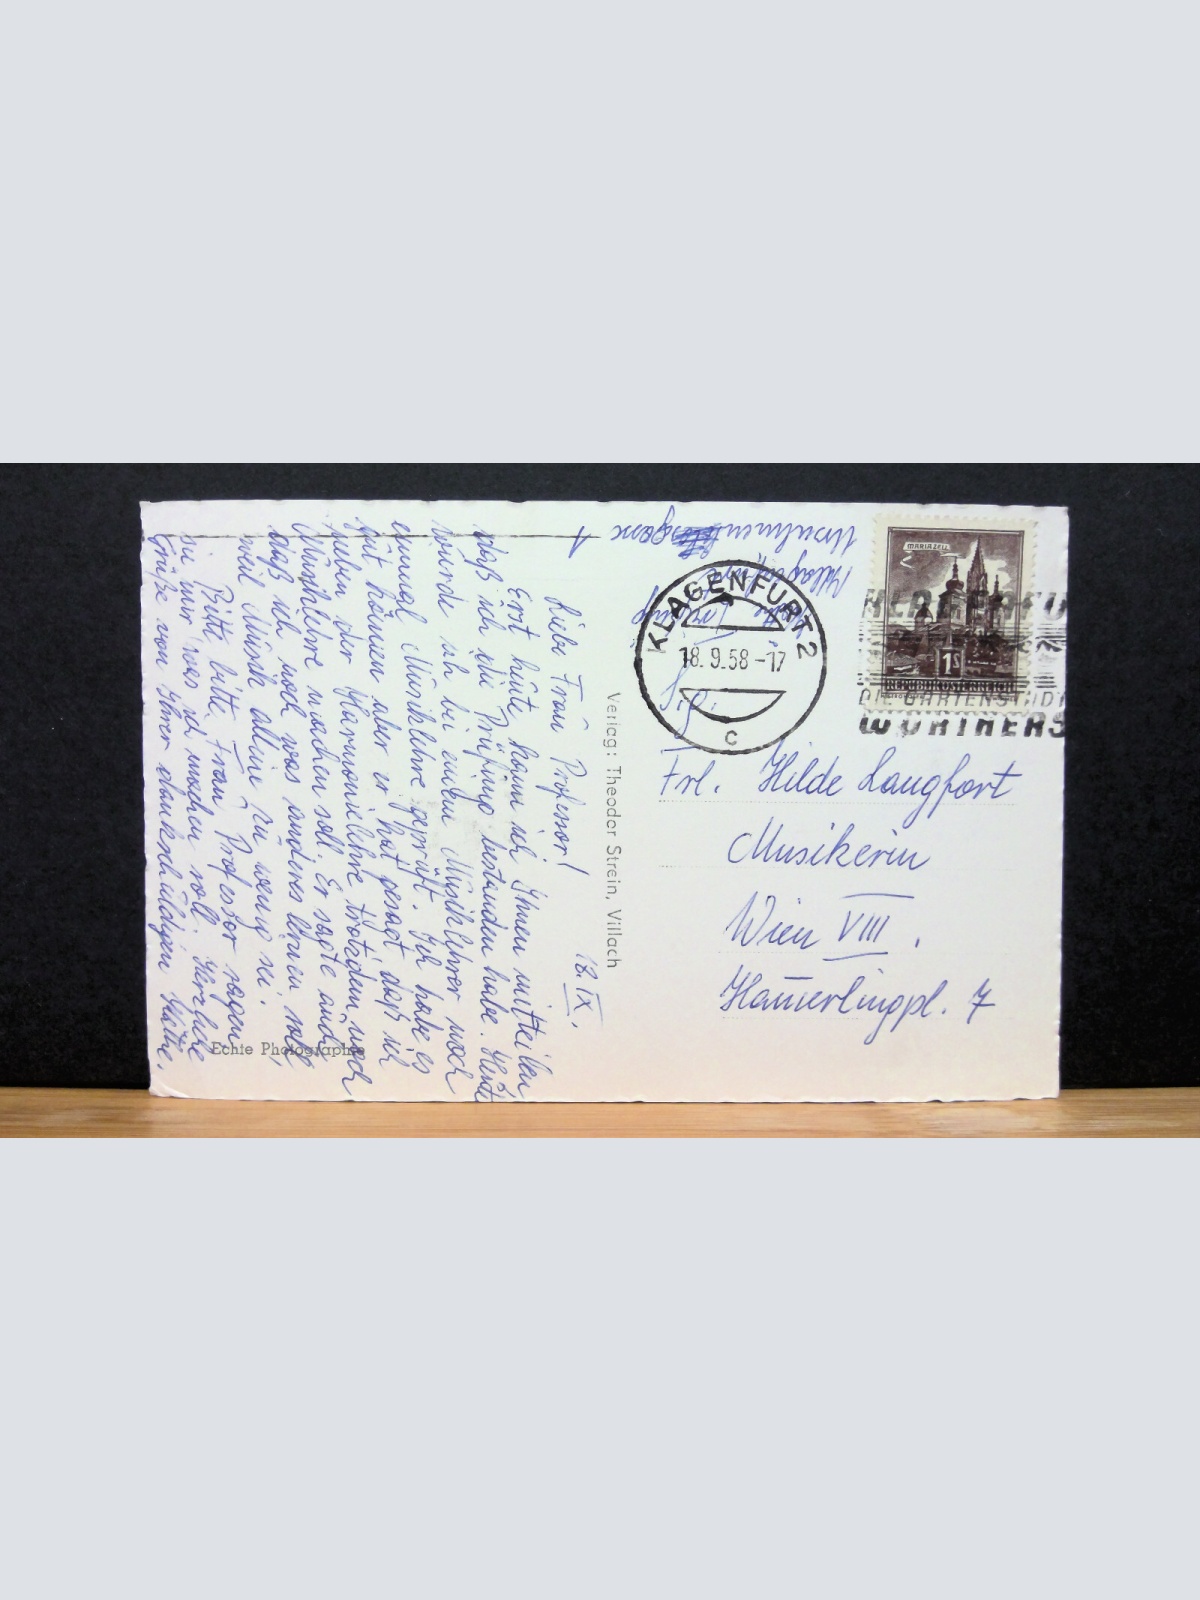 18. IX.
Liebe Frau Professor!
Erst heute kann ich Ihnen mitteilen
daß ich die Prüfung bestanden habe. Heute
wurde ich bei einem Musiklehrer noch
einmal Musiklehre geprüft. Ich habe es
gut können aber er hat gesagt daß ich
neben der Harmonielehre trotzdem noch
Musiklehre machen soll. Er sagte auch
daß ich noch was anderes lernen soll,
weil Musik alleine zu wenig sei.
Bitte bitte Frau Professor sagen
sie mir was ich machen soll. Herzliche
Grüße von Ihrer dankschuldigen Käthe.
Echte Photographie
Verlag: Theodor Strein, Villach
Klagenfurt
Ursulinengasse
1
KLAGENFURT 2
18.9.58-17
c
MARIAZELL
1S
REPUBLIK ÖSTERREICH
DIE GARTENSTADT
WÖRTHERS
Frl. Hilde Langfort
Musikerin
Wien VIII.
Hamerlingpl. 7